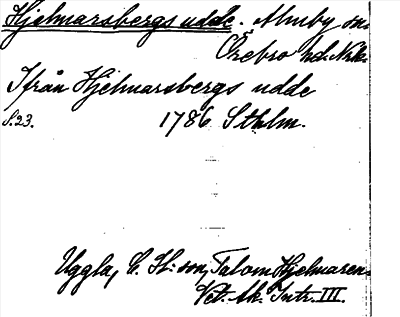 Hjelmarsbergs udde. Almby sn.
Örebro hd. Nrk.
Ifrån Hjelmarsbergs udde
S. 23. 1786 Sthlm.
Uggla, C. H:son, Tal om Hjelmaren.
Vet. Ak. Intr. III.